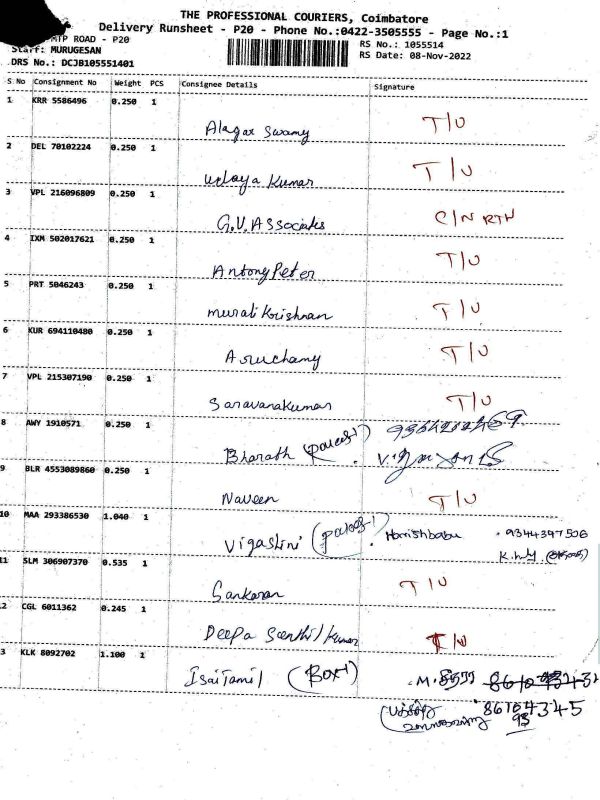 THE PROFESSIONAL COURIERS, Coimbatore
Delivery Runsheet - P20 - Phone No.:0422-3505555 - Page No.:1
MTP ROAD - P20
RS No.: 1055514
Staff: MURUGESAN
RS Date: 08-Nov-2022
DRS No.: DCJB105551401
S No Consignment No Weight PCS Consignee Details Signature
1 KRR 5586496 0.250 1
Alagar Swamy T/U
2 DEL 70102224 0.250 1
Udaya Kumar T/U
3 VPL 216096809 0.250 1
G.V. Associates C/N RTN
4 IXM 502017621 0.250 1
Antony Peter T/U
5 PRT 5046243 0.250 1
Murali Krishnan T/U
6 KUR 694110480 0.250 1
Aruchamy T/U
7 VPL 215307190 0.250 1
Saravanakumar T/U
8 AWY 1910571 0.250 1
Bharath
9 BLR 4553089860 0.250 1
Naveen T/U
10 MAA 293386530 1.040 1
Vigashini Harishbabu 9344397506
11 SLM 306907370 0.535 1
Sankaran T/U
2 CGL 6011362 0.245 1
Deepa Senthil kumar T/U
3 KLK 8092702 1.100 1
IsaiTamil (Box-1) M.
86104345
93